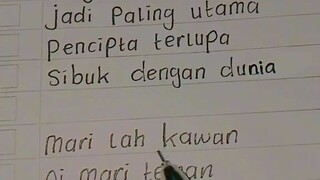 jadi Paling utama
Pencipta terlupa
Sibuk dengan dunia
mari lah kawan
Di mari teman